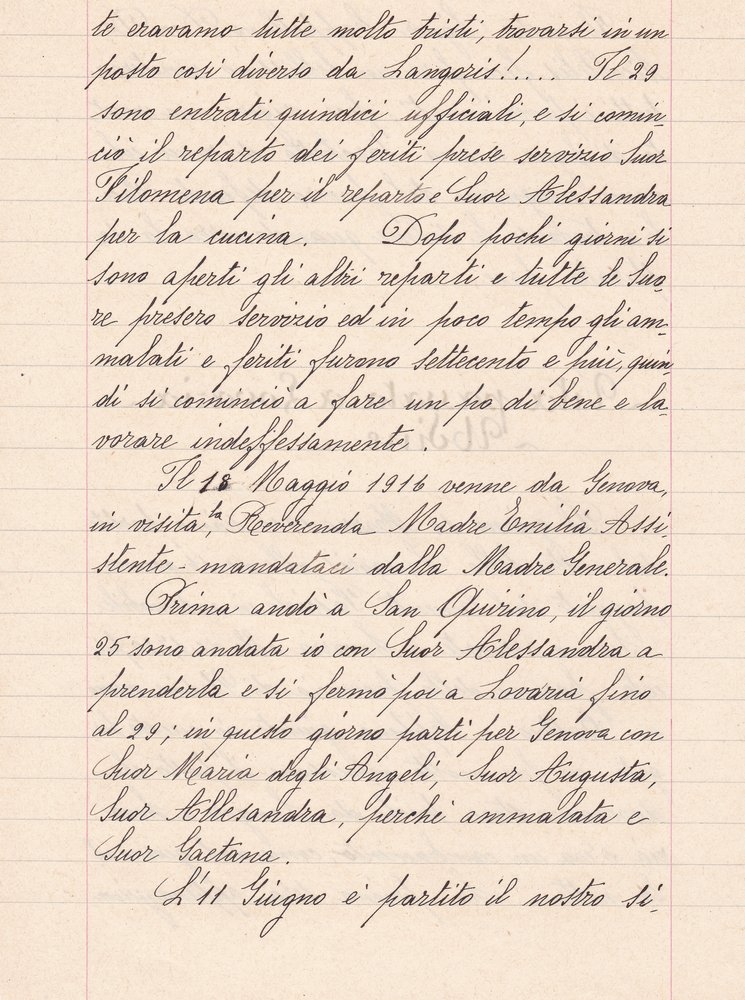 te eravamo tutte molto tristi, trovarsi in un
posto così diverso da Langoris!.... Il 29
sono entrati quindici ufficiali, e si comin-
ciò il reparto dei feriti prese servizio Suor
Filomena per il reparto e Suor Alessandra
per la cucina. Dopo pochi giorni si
sono aperti gli altri reparti e tutte le Suo-
re presero servizio ed in poco tempo gli am-
malati e feriti furono settecento e più, quin-
di si cominciò a fare un po di bene e la-
vorare indeffessamente.
Il 18 Maggio 1916 venne da Genova,
in visita, la Reverenda Madre Emilia Assi-
stente - mandataci dalla Madre Generale.
Prima andò a San Quirino, il giorno
25 sono andata io con Suor Alessandra a
prenderla e si fermò poi a Lovaria fino
al 29; in questo giorno partì per Genova con
Suor Maria degli Angeli, Suor Augusta,
Suor Allesandra, perchè ammalata e
Suor Gaetana.
L'11 Giugno è partito il nostro si-